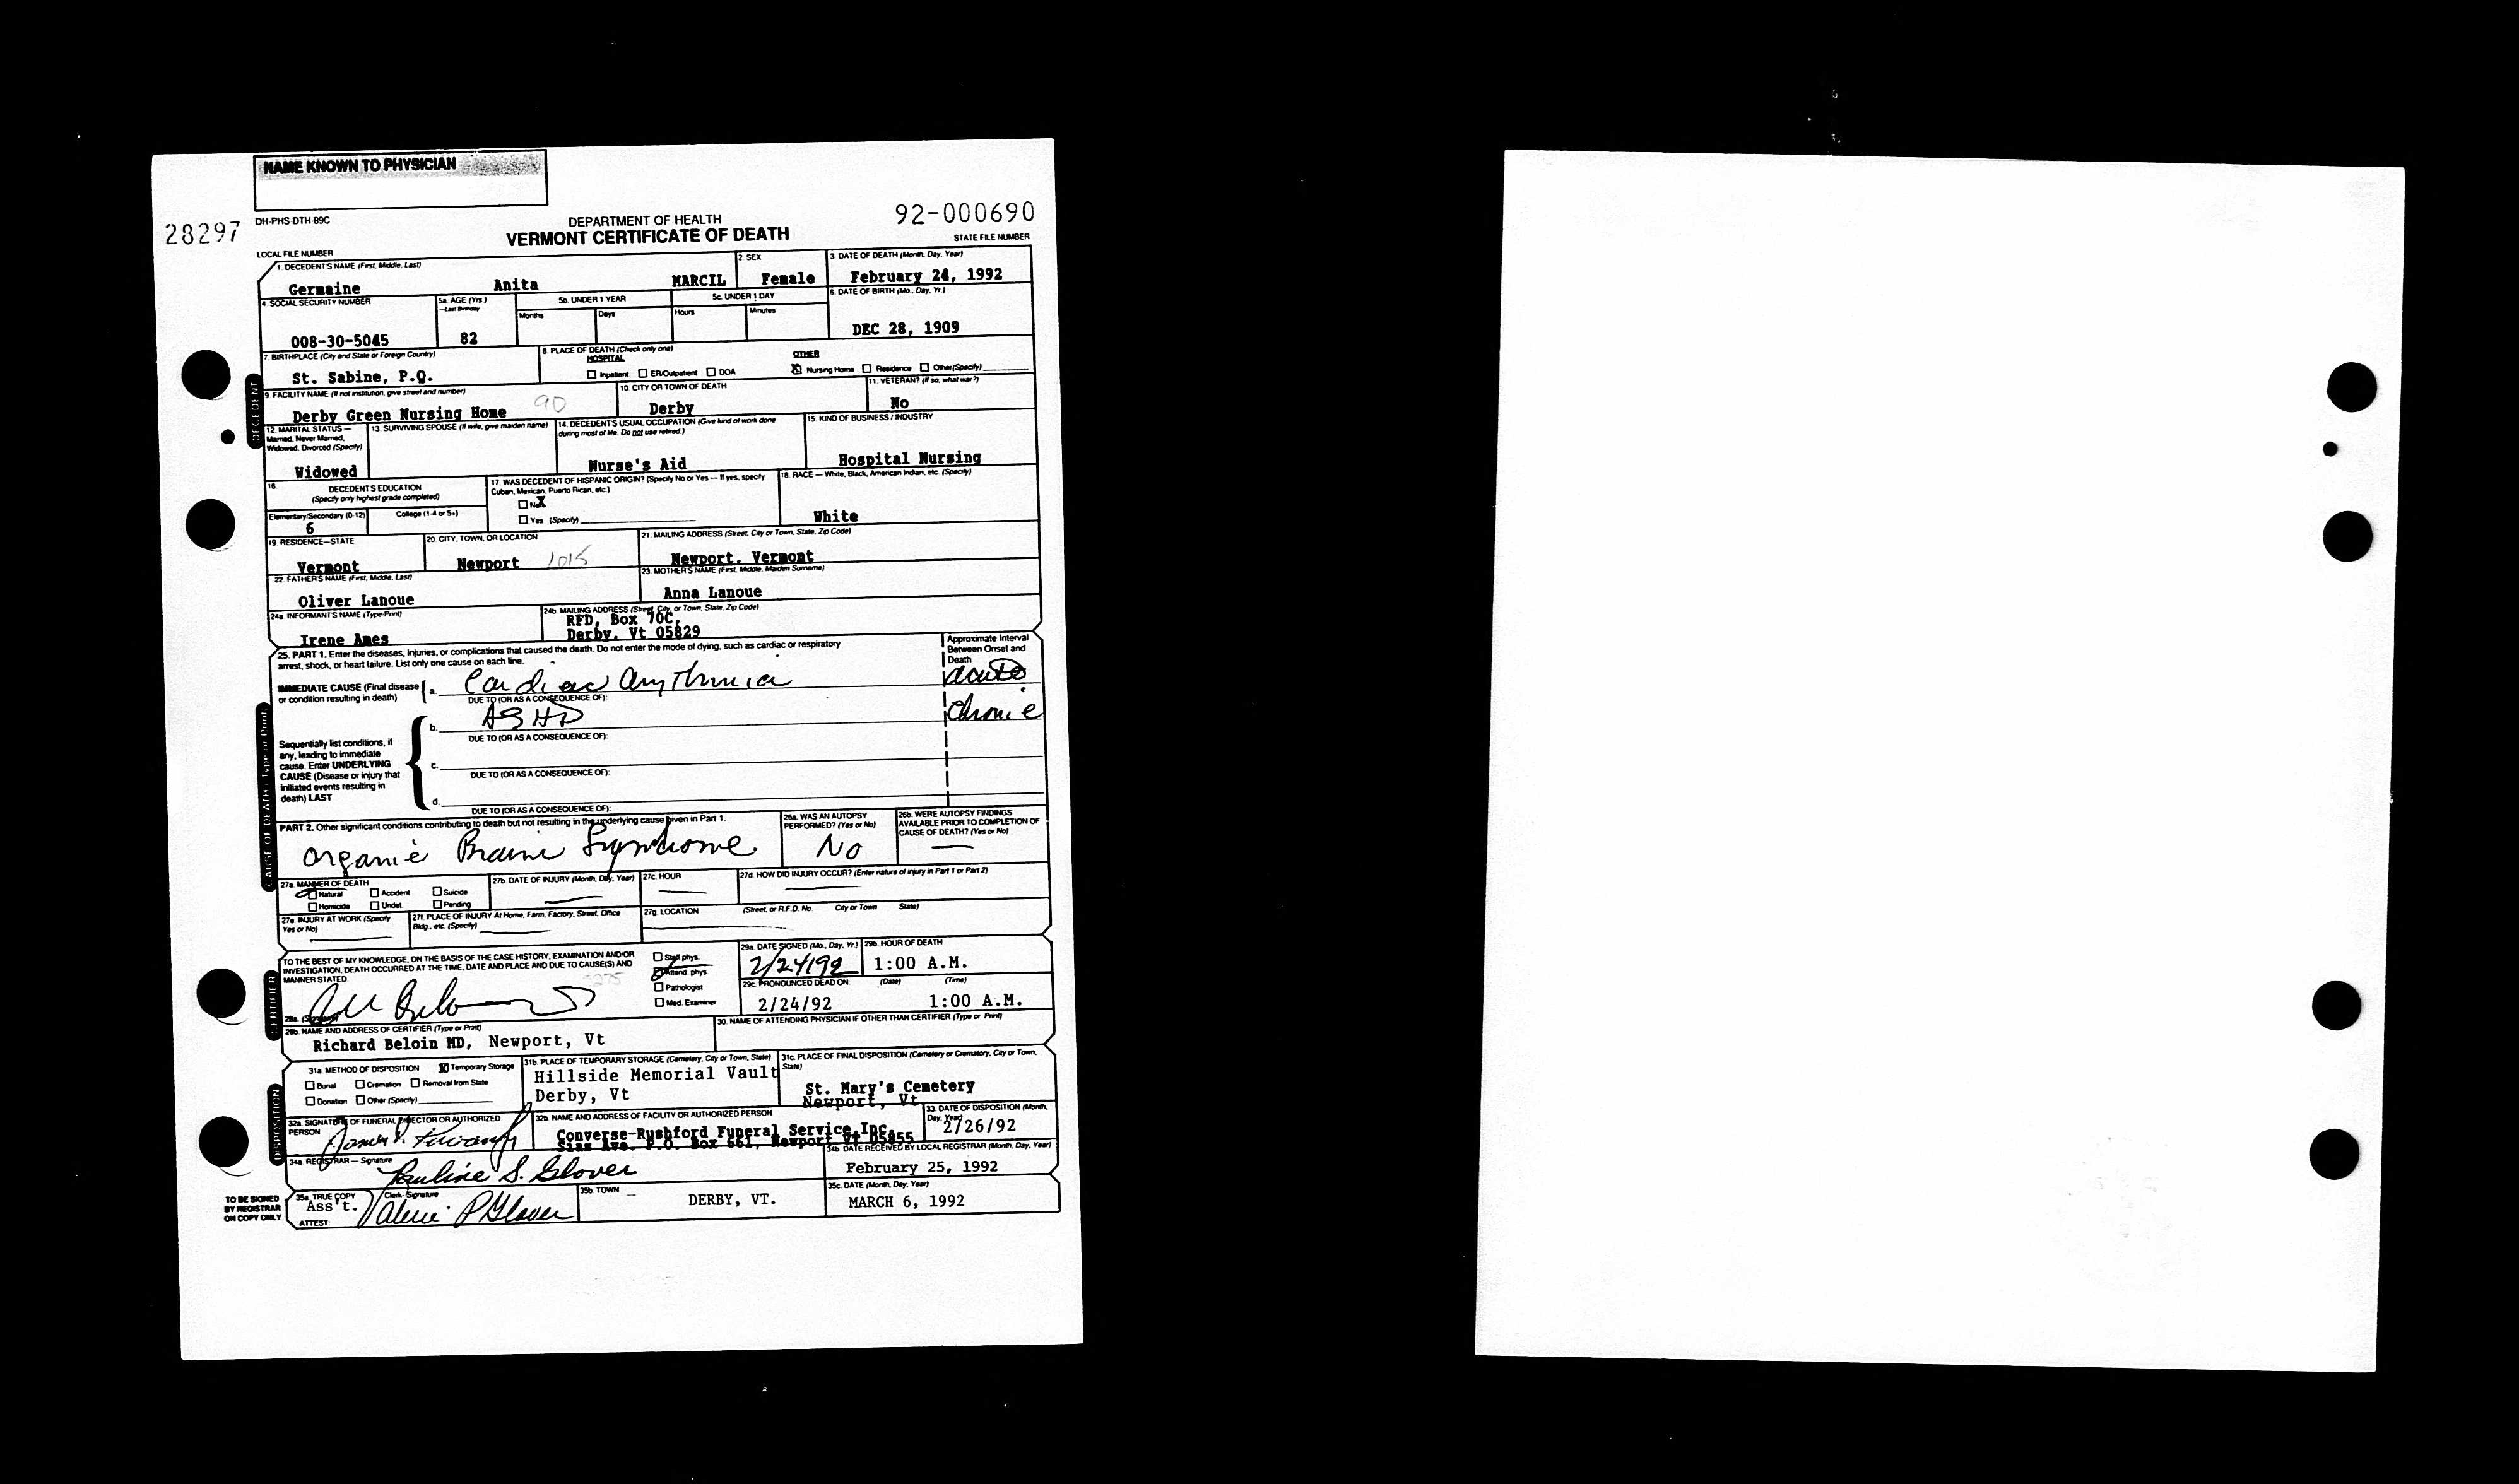 NAME KNOWN TO PHYSICIAN
DH-PHS-DTH-89C
28297
DEPARTMENT OF HEALTH
VERMONT CERTIFICATE OF DEATH
92-000690
STATE FILE NUMBER
LOCAL FILE NUMBER
1. DECEDENT'S NAME (First, Middle, Last)
Germaine Anita MARCIL
2. SEX
Female
3. DATE OF DEATH (Month, Day, Year)
February 24, 1992
4. SOCIAL SECURITY NUMBER
008-30-5045
5a. AGE (Yrs.) —Last Birthday
82
5b. UNDER 1 YEAR
Months Days
5c. UNDER 1 DAY
Hours Minutes
6. DATE OF BIRTH (Mo., Day, Yr.)
DEC 28, 1909
7. BIRTHPLACE (City and State or Foreign Country)
St. Sabine, P.Q.
8. PLACE OF DEATH (Check only one)
HOSPITAL
Inpatient ER/Outpatient DOA
OTHER
X Nursing Home Residence Other (Specify)
9. FACILITY NAME (If not institution, give street and number)
Derby Green Nursing Home 90
10. CITY OR TOWN OF DEATH
Derby
11. VETERAN? (If so, what war?)
No
12. MARITAL STATUS —
Married, Never Married,
Widowed, Divorced (Specify)
Widowed
13. SURVIVING SPOUSE (If wife, give maiden name)
14. DECEDENT'S USUAL OCCUPATION (Give kind of work done
during most of life. Do not use retired.)
Nurse's Aid
15. KIND OF BUSINESS / INDUSTRY
Hospital Nursing
16. DECEDENT'S EDUCATION
(Specify only highest grade completed)
Elementary/Secondary (0-12)
6
College (1-4 or 5+)
17. WAS DECEDENT OF HISPANIC ORIGIN? (Specify No or Yes — If yes, specify
Cuban, Mexican, Puerto Rican, etc.)
No X
Yes (Specify)
18. RACE — White, Black, American Indian, etc. (Specify)
White
19. RESIDENCE—STATE
Vermont
20. CITY, TOWN, OR LOCATION
Newport 1015
21. MAILING ADDRESS (Street, City or Town, State, Zip Code)
Newport, Vermont
22. FATHER'S NAME (First, Middle, Last)
Oliver Lanoue
23. MOTHER'S NAME (First, Middle, Maiden Surname)
Anna Lanoue
24a. INFORMANT'S NAME (Type/Print)
Irene Ames
24b. MAILING ADDRESS (Street, City, or Town, State, Zip Code)
RFD, Box 70C,
Derby, Vt 05829
25. PART 1. Enter the diseases, injuries, or complications that caused the death. Do not enter the mode of dying, such as cardiac or respiratory
arrest, shock, or heart failure. List only one cause on each line.
Approximate Interval
Between Onset and
Death
IMMEDIATE CAUSE (Final disease
or condition resulting in death)
a. Cardiac arythmia acute
DUE TO (OR AS A CONSEQUENCE OF):
b. ASHD Chronic
DUE TO (OR AS A CONSEQUENCE OF):
Sequentially list conditions, if
any, leading to immediate
cause. Enter UNDERLYING
CAUSE (Disease or injury that
initiated events resulting in
death) LAST
c.
DUE TO (OR AS A CONSEQUENCE OF):
d.
DUE TO (OR AS A CONSEQUENCE OF):
PART 2. Other significant conditions contributing to death but not resulting in the underlying cause given in Part 1.
Organic Brain Syndrome
26a. WAS AN AUTOPSY
PERFORMED? (Yes or No)
No
26b. WERE AUTOPSY FINDINGS
AVAILABLE PRIOR TO COMPLETION OF
CAUSE OF DEATH? (Yes or No)
—
27a. MANNER OF DEATH
Natural Accident Suicide
Homicide Undet. Pending
27b. DATE OF INJURY (Month, Day, Year)
27c. HOUR
27d. HOW DID INJURY OCCUR? (Enter nature of injury in Part 1 or Part 2)
27e. INJURY AT WORK (Specify
Yes or No)
27f. PLACE OF INJURY At Home, Farm, Factory, Street, Office
Bldg., etc. (Specify)
27g. LOCATION (Street, or R.F.D. No. City or Town State)
TO THE BEST OF MY KNOWLEDGE, ON THE BASIS OF THE CASE HISTORY, EXAMINATION AND/OR
INVESTIGATION, DEATH OCCURRED AT THE TIME, DATE AND PLACE AND DUE TO CAUSE(S) AND
MANNER STATED.
28a. (Signature)
Staff phys.
Attend. phys.
Pathologist
Med. Examiner
29a. DATE SIGNED (Mo., Day, Yr.)
2/24/92
29b. HOUR OF DEATH
1:00 A.M.
29c. PRONOUNCED DEAD ON: (Date) (Time)
2/24/92 1:00 A.M.
28b. NAME AND ADDRESS OF CERTIFIER (Type or Print)
Richard Beloin MD, Newport, Vt
30. NAME OF ATTENDING PHYSICIAN IF OTHER THAN CERTIFIER (Type or Print)
31a. METHOD OF DISPOSITION X Temporary Storage
Burial Cremation Removal from State
Donation Other (Specify)
31b. PLACE OF TEMPORARY STORAGE (Cemetery, City or Town, State)
Hillside Memorial Vault
Derby, Vt
31c. PLACE OF FINAL DISPOSITION (Cemetery or Crematory, City or Town,
State)
St. Mary's Cemetery
Newport, Vt
32a. SIGNATURE OF FUNERAL DIRECTOR OR AUTHORIZED
PERSON
32b. NAME AND ADDRESS OF FACILITY OR AUTHORIZED PERSON
Converse-Rushford Funeral Service, Inc.
Sias Ave. P.O. Box 661, Newport Vt 05855
33. DATE OF DISPOSITION (Month,
Day, Year)
2/26/92
34a. REGISTRAR — Signature
Pauline S. Glover
34b. DATE RECEIVED BY LOCAL REGISTRAR (Month, Day, Year)
February 25, 1992
TO BE SIGNED
BY REGISTRAR
ON COPY ONLY
35a. TRUE COPY
Ass't. Clerk - Signature
ATTEST: Valerie P Glover
35b. TOWN
DERBY, VT.
35c. DATE (Month, Day, Year)
MARCH 6, 1992
DECEDENT
CAUSE OF DEATH (Type or Print)
CERTIFIER
DISPOSITION